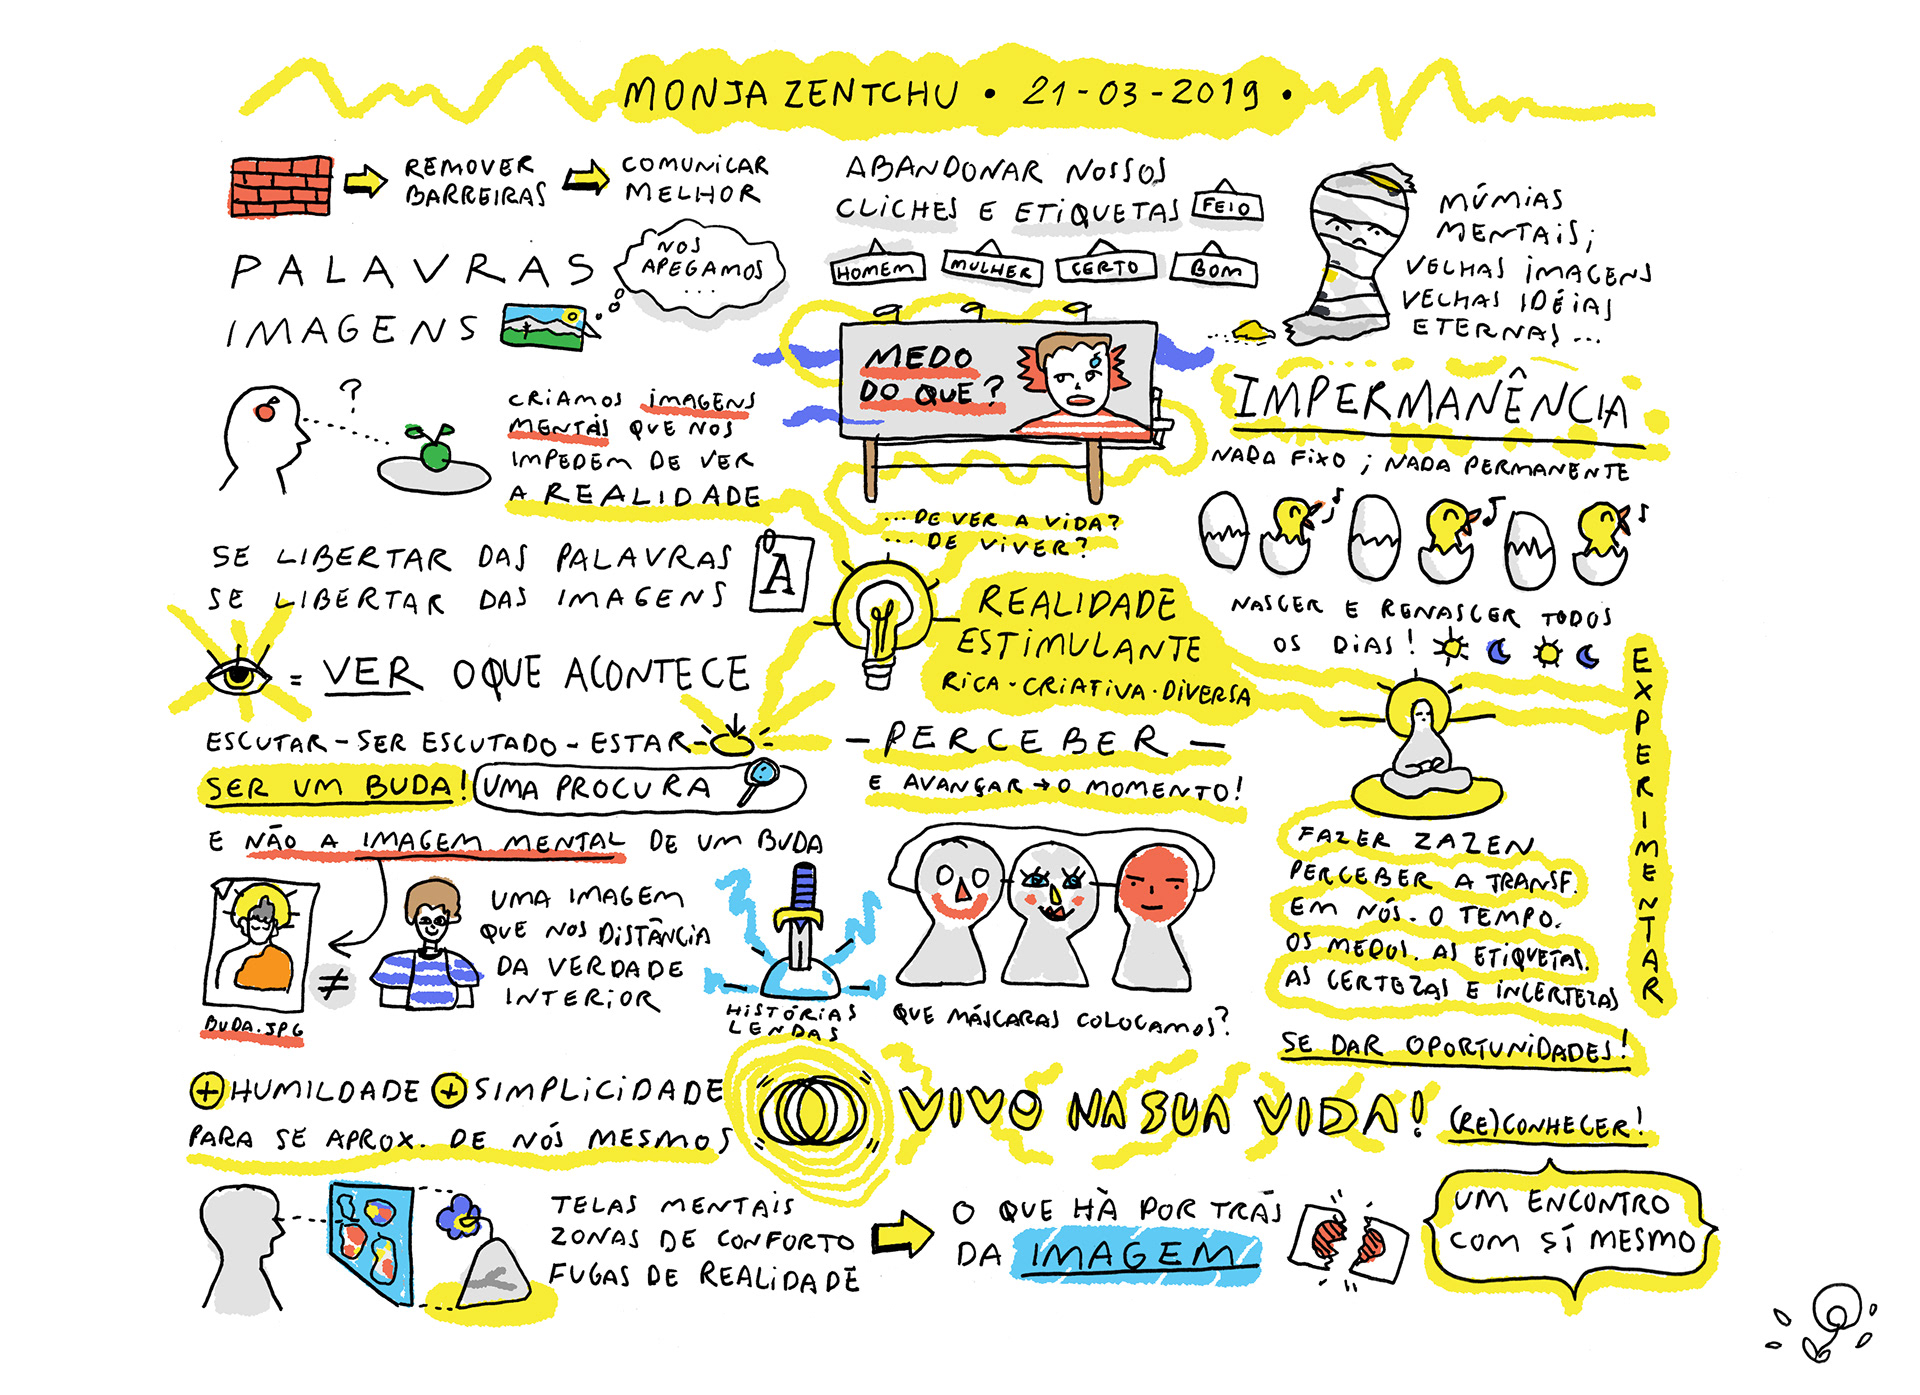 MONJA ZENTCHU • 21-03-2019 •
REMOVER
BARREIRAS
COMUNICAR
MELHOR
PALAVRAS
IMAGENS
NOS
APEGAMOS
...
ABANDONAR NOSSOS
CLICHES E ETIQUETAS
FEIO
HOMEM
MULHER
CERTO
BOM
MÚMIAS
MENTAIS;
VELHAS IMAGENS
VELHAS IDÉIAS
ETERNAS...
?
CRIAMOS IMAGENS
MENTAS QUE NOS
IMPEDEM DE VER
A REALIDADE
MEDO
DO QUE?
...DE VER A VIDA?
...DE VIVER?
IMPERMANÊNCIA
NADA FIXO; NADA PERMANENTE
NASCER E RENASCER TODOS
OS DIAS!
SE LIBERTAR DAS PALAVRAS
SE LIBERTAR DAS IMAGENS
A
= VER O QUE ACONTECE
REALIDADE
ESTIMULANTE
RICA-CRIATIVA-DIVERSA
ESCUTAR-SER ESCUTADO-ESTAR-
SER UM BUDA! UMA PROCURA
E NÃO A IMAGEM MENTAL DE UM BUDA
- PERCEBER -
E AVANÇAR → O MOMENTO!
EXPERIMENTAR
BUDA.JPG
≠
UMA IMAGEM
QUE NOS DISTÂNCIA
DA VERDADE
INTERIOR
HISTÓRIAS
LENDAS
QUE MÁSCARAS COLOCAMOS?
FAZER ZAZEN
PERCEBER A TRANSF.
EM NÓS. O TEMPO.
OS MEDOS. AS ETIQUETAS.
AS CERTEZAS E INCERTEZAS
SE DAR OPORTUNIDADES!
+ HUMILDADE + SIMPLICIDADE
PARA SE APROX. DE NÓS MESMOS
VIVO NA SUA VIDA!
(RE)CONHECER!
TELAS MENTAIS
ZONAS DE CONFORTO
FUGAS DE REALIDADE
O QUE HÀ POR TRÁS
DA IMAGEM
UM ENCONTRO
COM SÍ MESMO